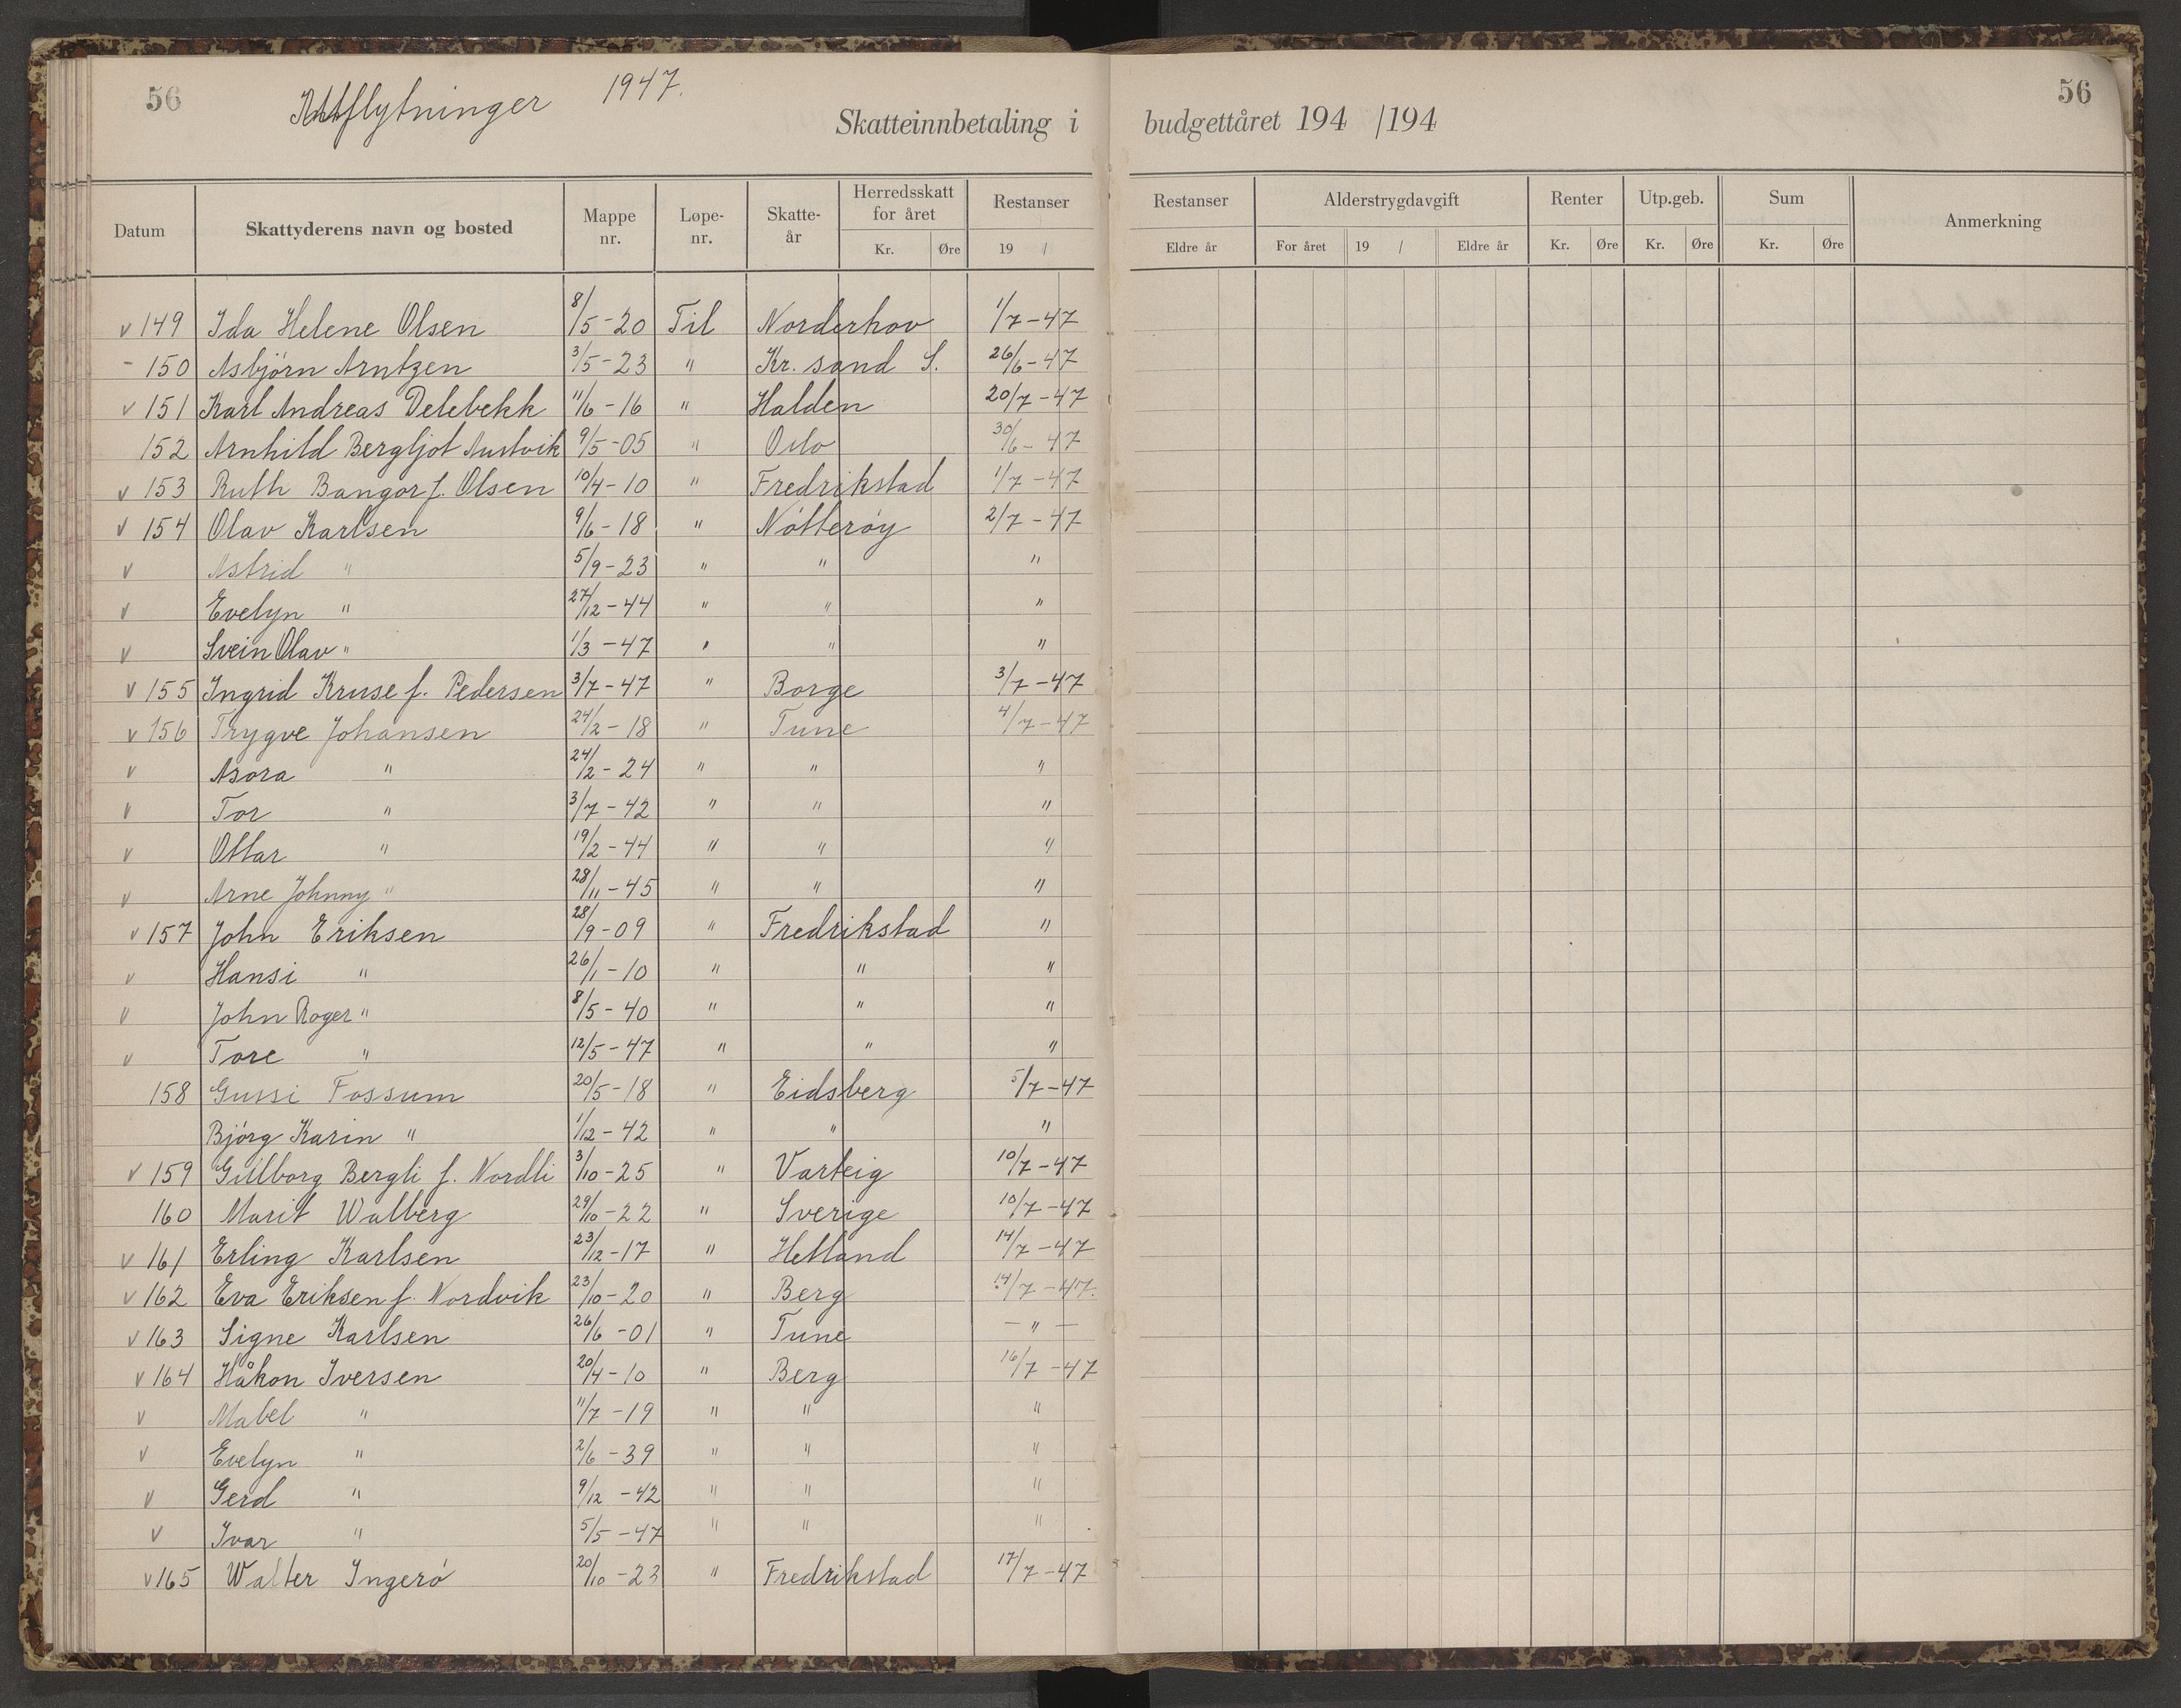 56
Utflytninger 1947.
Skatteinnbetaling i budgettåret 194 /194
56
Datum Skattyderens navn og bosted Mappe nr. Løpe-nr. Skatte-år Herredsskatt for året Kr. Øre Restanser 19 /
Restanser Eldre år Alderstrygdavgift For året 19 / Eldre år Renter Kr. Øre Utp.geb. Kr. Øre Sum Kr. Øre Anmerkning
v 149 Ida Helene Olsen 8/5-20 Til Norderhov 1/7-47
- 150 Asbjörn Arntzen 3/5-23 " Kr. sand S. 26/6-47
v 151 Karl Andreas Delebekk 11/6-16 " Halden 20/7-47
152 Arnhild Bergljot Austvik 9/5-05 " Oslo 30/6-47
v 153 Ruth Bangor f. Olsen 10/4-10 " Fredrikstad 1/7-47
v 154 Olav Karlsen 9/6-18 " Nötteröy 2/7-47
v Astrid " 5/9-23 " " "
v Evelyn " 27/12-44 " " "
v Svein Olav " 1/3-47 " " "
v 155 Ingrid Kruse f. Pedersen 3/7-47 " Borge 3/7-47
v 156 Trygve Johansen 24/2-18 " Tune 4/7-47
v Asora " 24/2-24 " " "
v Tor " 3/7-42 " " "
v Ottar " 19/2-44 " " "
v Arne Johnny " 28/11-45 " " "
v 157 John Eriksen 28/9-09 " Fredrikstad "
v Hansi " 26/1-10 " " "
v John Roger " 8/5-40 " " "
v Tore " 12/5-47 " " "
158 Gussi Fossum 20/5-18 " Eidsberg 5/7-47
Björg Karin " 1/12-42 " " "
v 159 Gillborg Bergli f. Nordli 3/10-25 " Varteig 10/7-47
160 Marit Walberg 29/10-22 " Sverige 10/7-47
v 161 Erling Karlsen 23/12-17 " Hetland 14/7-47
v 162 Eva Eriksen f. Nordvik 23/10-20 " Berg 14/7-47.
v 163 Signe Karlsen 26/6-01 " Tune - " -
v 164 Håkon Iversen 20/4-10 " Berg 16/7-47
v Mabel " 11/7-19 " " "
v Evelyn " 2/6-39 " " "
v Gerd " 9/12-42 " " "
v Ivar " 5/5-47 " " "
v 165 Walter Ingerö 20/10-23 " Fredrikstad 17/7-47